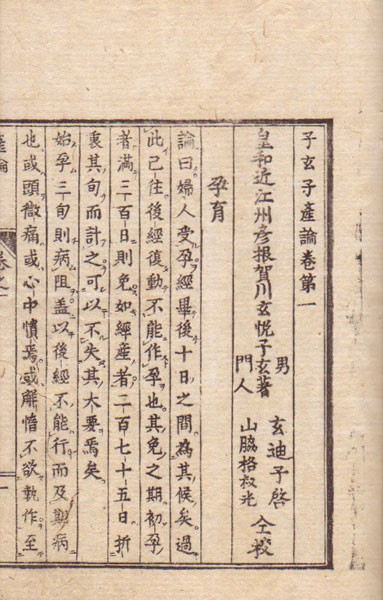 子玄子產論卷第一
皇和近江州彥根賀川玄悅子玄著
男 玄迪子啓
門人 山脇格叔光
仝校
孕育
論曰婦人受孕經畢後十日之間為其候矣過
此已往後經復動不能作孕也其免之期初孕
者滿三百日則免如經產者二百七十五日折
衷其旬而計之可以不失其大要焉矣
始孕三旬則病阻盖以後經不能行而及期病
也或頭微痛或心中憒焉或解惰不欲執作至
產論
卷之一